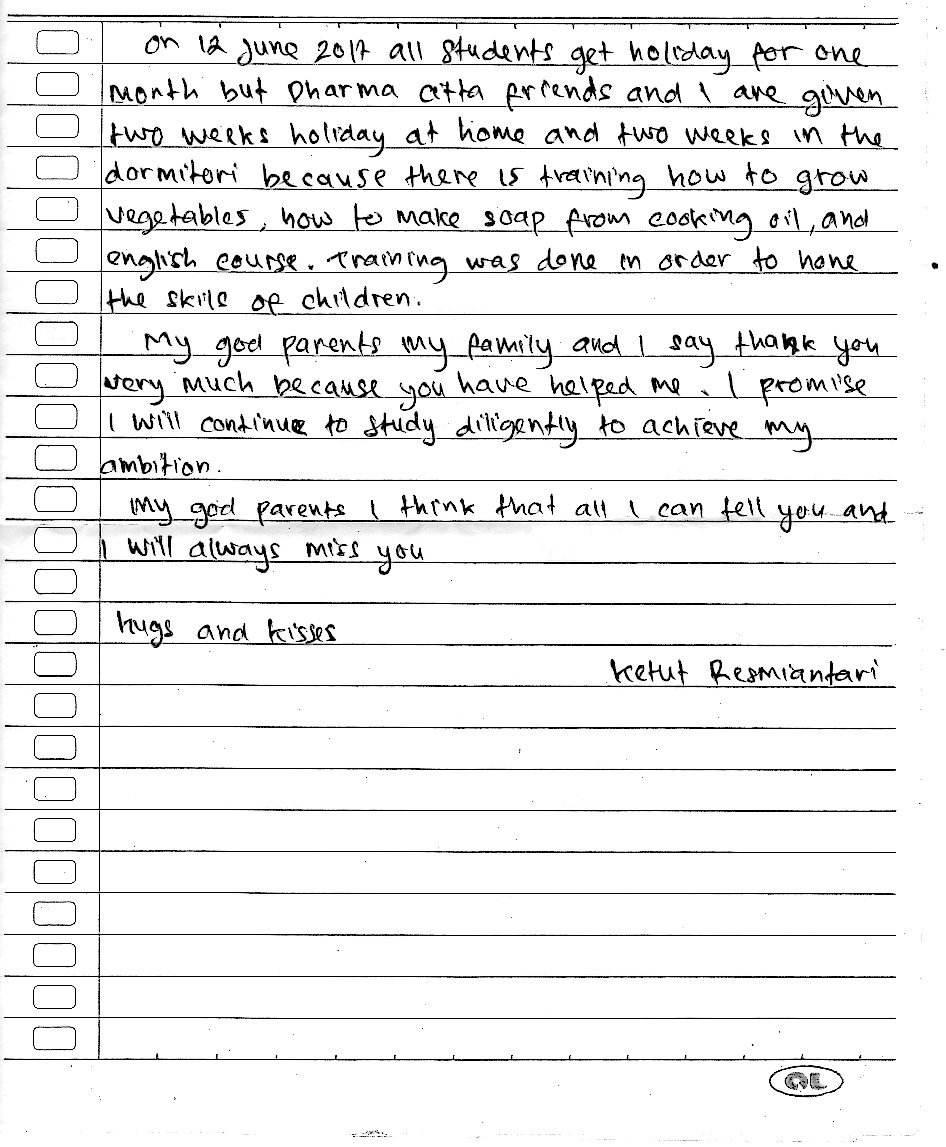 on 12 June 2017 all students get holiday for one
month but Dharma citta friends and I are given
two weeks holiday at home and two weeks in the
dormitori because there is training how to grow
vegetables, how to make soap from cooking oil, and
english course. Training was done in order to hone
the skils of children.
My god parents my family and I say thank you
very much because you have helped me. I promise
I will continue to study diligently to achieve my
ambition.
My god parents I think that all I can tell you and
I will always miss you
hugs and kisses
Ketut Resmiantari
QL